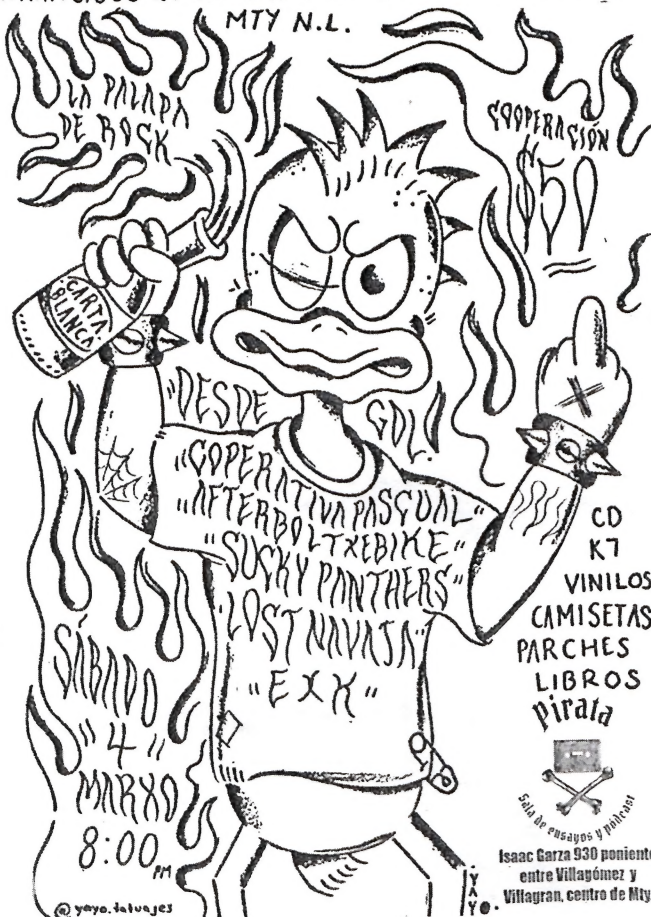 MTY N.L.
LA PALAPA
DE ROCK
COOPERACIÓN
$50
CARTA
BLANCA
"DESDE GDL."
"COPERATIVA PASCUAL"
"AFTERBOLTXEBIKE"
"SUCKY PANTHERS"
"LOST NAVAJA"
"EXK"
CD
K7
VINILOS
CAMISETAS
PARCHES
LIBROS
pirata
Sala de ensayos y pódcast
Isaac Garza 930 poniente
entre Villagómez y
Villagran, centro de Mty
SÁBADO
"4"
MARXO
8:00 PM
@yayo.tatuajes
YAYO.